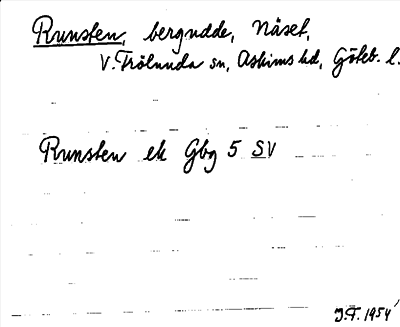 Runsten, bergudde, Näset,
V. Frölunda sn, Askims hd, Göteb. l.
Runsten ek Gbg 5 SV
J.F. 1954